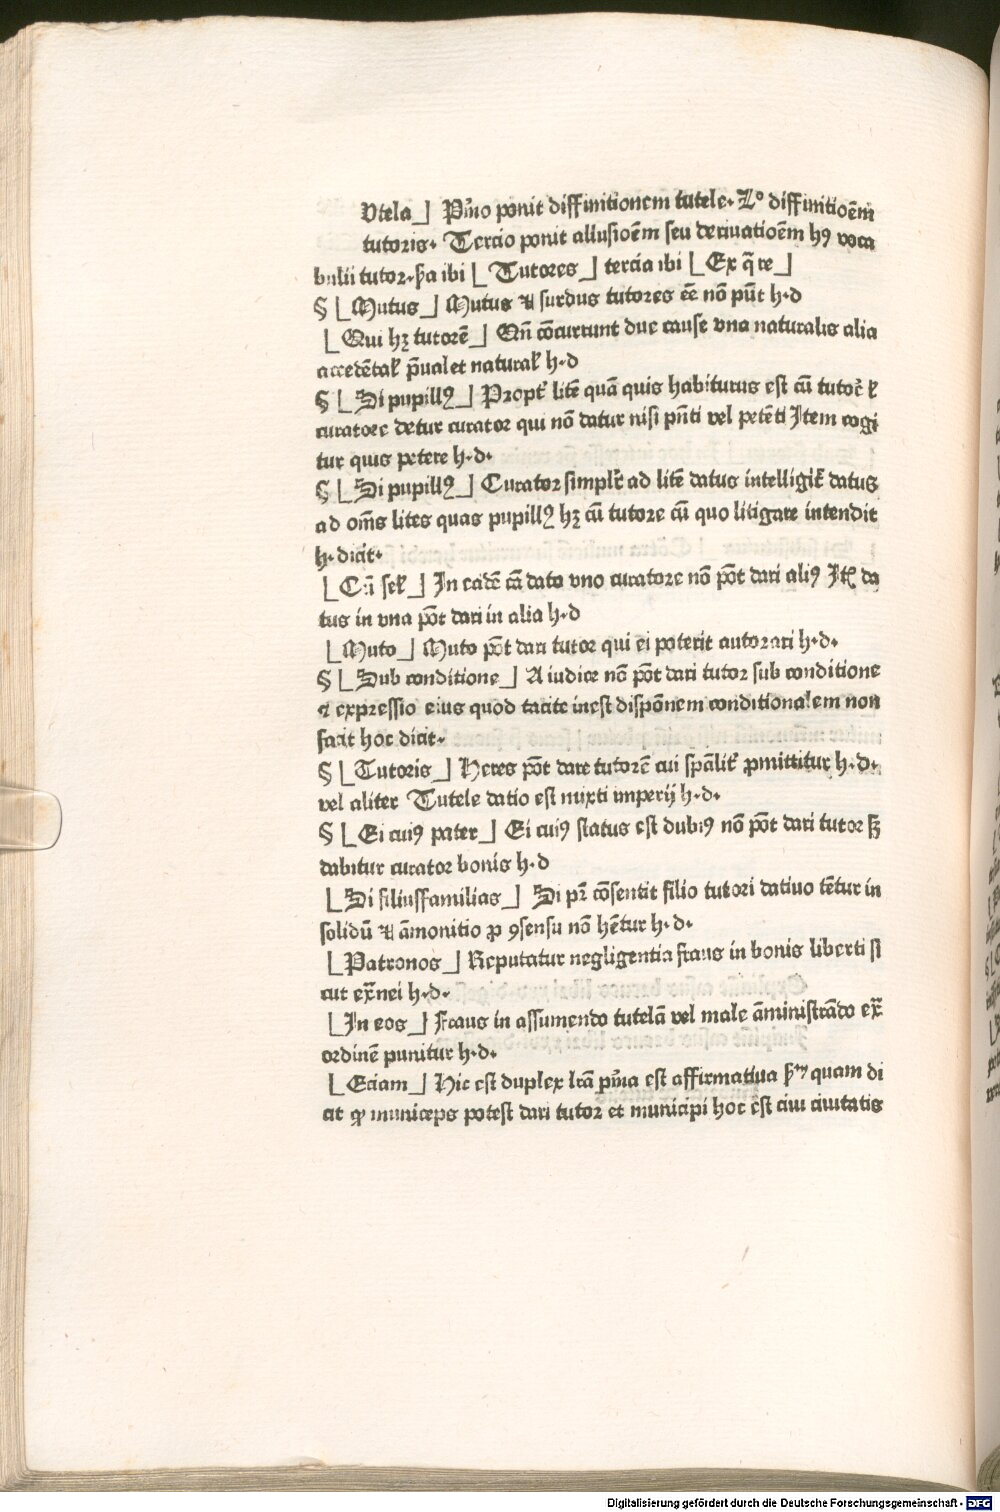 Vtela ⌋ Pͥmo ponit diffinitionem tutele. Z° diffinitioēm
tutoris. Tercio ponit allusioēm seu deriuatioēm hꝰ voca
bulii tutor. ẜa ibi ⌊ Tutores ⌋ tercia ibi ⌊ Ex q̄ re ⌋
§ ⌊ Mutus ⌋ Mutus ⁊ surdus tutores eē nō pn̄t h.d
⌊ Qui hꝫ tutorē ⌋ Qn̄ cōcurrunt due cause vna naturalis alia
accedētaƚ p̄ualet naturaƚ h.d
§ ⌊ Si pupillꝰ ⌋ Propt̄ litē quā quis habiturus est cū tutor̄ ƚ
curatore detur curator qui nō datur nisi pn̄ti vel petēti Jtem cogi
tur quis petere h.d.
§ ⌊ Si pupillꝰ ⌋ Curator simplr̄ ad litē datus intelligit̄ datus
ad om̄s lites quas pupillꝰ hꝫ cū tutore cū quo litigare intendit
h.dicit.
⌊ Cū seƚ ⌋ In eadē cā dato vno curatore nō pōt dari aliꝰ Jtē da
tus in vna pōt dari in alia h.d
⌊ Muto ⌋ Muto pōt dari tutor qui ei poterit autorari h.d.
§ ⌊ Sub conditione ⌋ A iudice nō pōt dari tutor sub conditione
⁊ expressio eius quod tacite inest dispōnem conditionalem non
facit hoc dicit.
§ ⌊ Tutoris ⌋ Heres pōt dare tutorē cui sp̄alit̄ ꝓmittitur h.d.
vel aliter Tutele datio est mixti imperij h.d.
§ ⌊ Ei cuiꝰ pater ⌋ Ei cuiꝰ status est dubiꝰ nō pōt dari tutor sꝫ
dabitur curator bonis h.d
⌊ Si filiusfamilias ⌋ Si pr̄ cōsentit filio tutori datiuo tētur in
solidū ⁊ āmonitio ꝓ ꝯsensu nō hētur h.d.
⌊ Patronos ⌋ Reputatur negligentia fraus in bonis liberti si
cut ex̄nei h.d.
⌊ In eos ⌋ Fraus in assumendo tutelā vel male āministrādo ex̄
ordinē punitur h.d.
⌊ Eciam ⌋ Hic est duplex lr̄a pͥma est affirmatiua ẜm quam di
cit ꝙ municeps potest dari tutor et municipi hoc est ciui ciuitatis
Digitalisierung gefördert durch die Deutsche Forschungsgemeinschaft - DFG